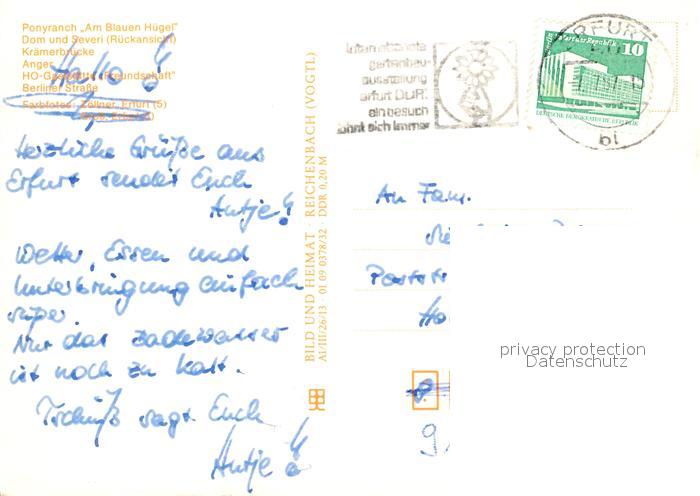 Ponyranch „Am Blauen Hügel"
Dom und Severi (Rückansicht)
Krämerbrücke
Anger
HO-Gaststätte „Freundschaft"
Berliner Straße
Farbfotos: Zöllner, Erfurt (5)
Hallo!
Herzliche Grüße aus
Erfurt sendet Euch
Antje!
Wetter, Essen und
Unterbringung einfach
super.
Nur das Badewasser
ist noch zu kalt.
Tschüß sagt Euch
Antje!
BILD UND HEIMAT · REICHENBACH (VOGTL)
A1/III/26/13 · 01 09 0378/32 DDR 0,20 M
Internationale
gartenbau-
ausstellung
erfurt DDR
ein besuch
lohnt sich immer
ERFURT
bi
10
DEUTSCHE DEMOKRATISCHE REPUBLIK
An Fam.
privacy protection
Datenschutz